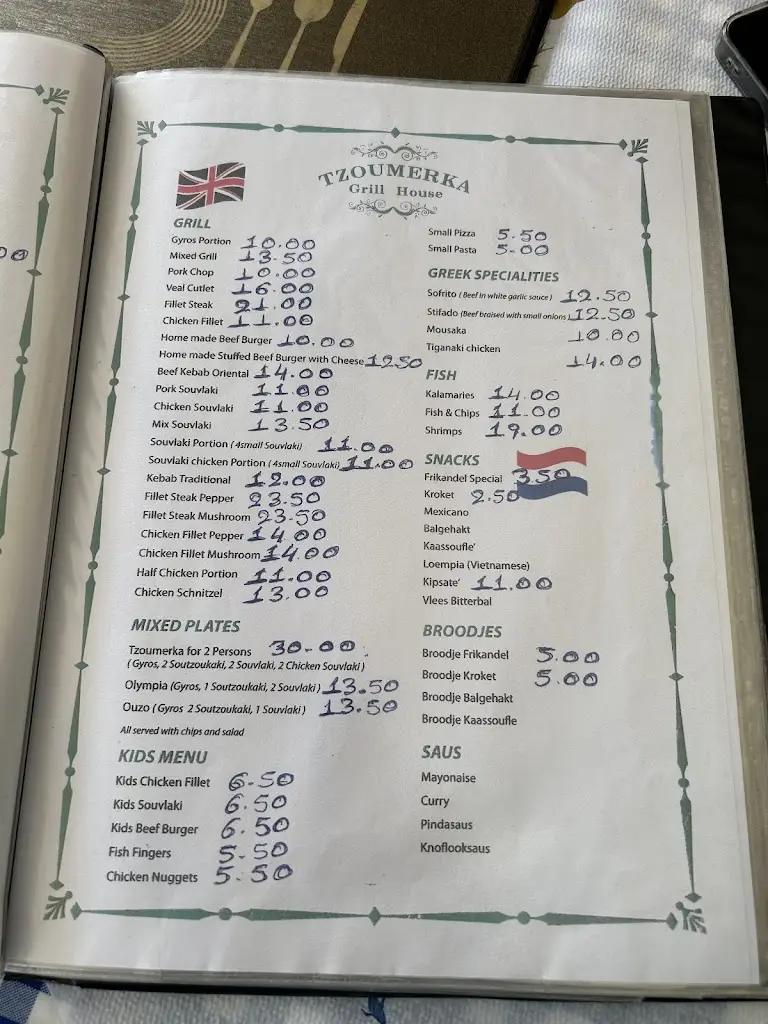 TZOUMERKA
Grill House
GRILL
Gyros Portion 10.00
Mixed Grill 13.50
Pork Chop 10.00
Veal Cutlet 16.00
Fillet Steak 21.00
Chicken Fillet 11.00
Home made Beef Burger 10.00
Home made Stuffed Beef Burger with Cheese 12.50
Beef Kebab Oriental 14.00
Pork Souvlaki 11.00
Chicken Souvlaki 11.00
Mix Souvlaki 13.50
Souvlaki Portion ( 4small Souvlaki) 11.00
Souvlaki chicken Portion ( 4small Souvlaki) 11.00
Kebab Traditional 12.00
Fillet Steak Pepper 23.50
Fillet Steak Mushroom 23.50
Chicken Fillet Pepper 14.00
Chicken Fillet Mushroom 14.00
Half Chicken Portion 11.00
Chicken Schnitzel 13.00
MIXED PLATES
Tzoumerka for 2 Persons 30.00
( Gyros, 2 Soutzoukaki, 2 Souvlaki, 2 Chicken Souvlaki )
Olympia (Gyros, 1 Soutzoukaki, 2 Souvlaki ) 13.50
Ouzo ( Gyros 2 Soutzoukaki, 1 Souvlaki ) 13.50
All served with chips and salad
KIDS MENU
Kids Chicken Fillet 6.50
Kids Souvlaki 6.50
Kids Beef Burger 6.50
Fish Fingers 5.50
Chicken Nuggets 5.50
Small Pizza 5.50
Small Pasta 5.00
GREEK SPECIALITIES
Sofrito ( Beef in white garlic sauce ) 12.50
Stifado (Beef braised with small onions ) 12.50
Mousaka 10.00
Tiganaki chicken 14.00
FISH
Kalamaries 14.00
Fish & Chips 11.00
Shrimps 19.00
SNACKS
Frikandel Special 3.50
Kroket 2.50
Mexicano
Balgehakt
Kaassoufle'
Loempia (Vietnamese)
Kipsate' 11.00
Vlees Bitterbal
BROODJES
Broodje Frikandel 5.00
Broodje Kroket 5.00
Broodje Balgehakt
Broodje Kaassoufle
SAUS
Mayonaise
Curry
Pindasaus
Knoflooksaus